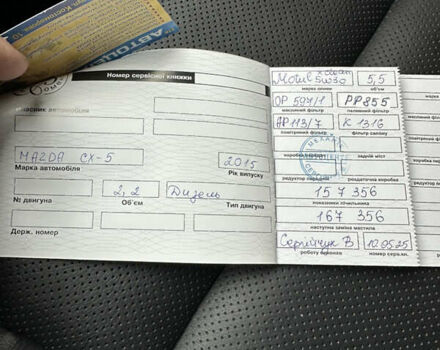 АВТОЦЕ
Номер сервісної книжки
власник автомобіля
MAZDA CX-5
2015
Марка автомобіля
Рік випуску
2,2
Дизель
№ двигуна
Об'єм
Тип двигуна
Держ. номер
Motul 8 clean 5w30
5,5
марка оливи
об'єм
OP 597/1
PP855
масляний фільтр
паливний фільтр
AP 113/7
K 1316
повітряний фільтр
фільтр салону
коробка передач
задній міст
редуктор передній
роздаточна коробка
157 356
показники лічильника
167 356
наступна заміна мастила
Сергійчук В
10.05.25
роботу виконав